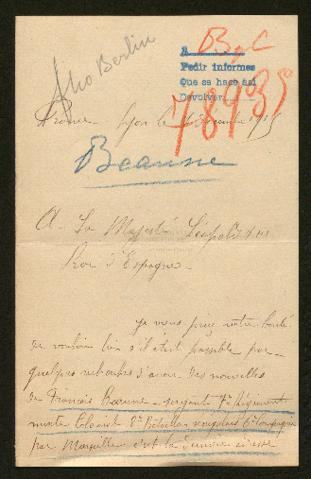 Afho Berlin
A
Pedir informes
Que se hace así
Devolver
B y C
78935
France Lyon le 1915
Beaune
A Sa Majesté Léopold XIII
Roi d'Espagne
je vous prie votre bonté
de vouloir bien s'il était possible par
quelques recherches d'avoir des nouvelles
de Francis Beaune sergent Régiment
mixte Colonial 8e Bataillon 6e Compagnie
par Marseille est la dernière adresse